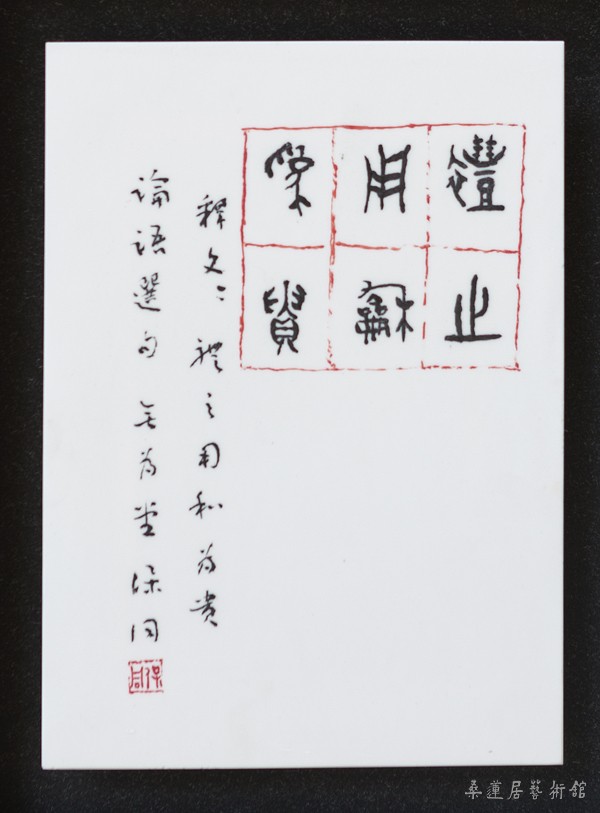 禮之
用龢
為貴
释文：禮之用和為貴
論語選句 無為堂 保同
保同
桑蓮居藝術館